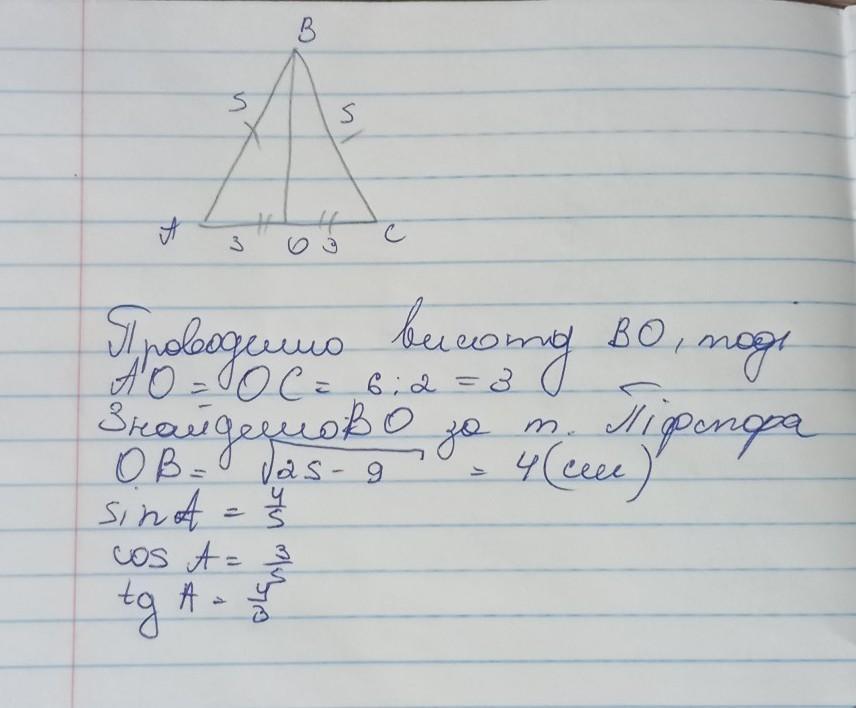 B
5 5
A 3 O 3 C
Проводимо висоту BO, тоді
AO = OC = 6 : 2 = 3
Знайдемо BO за т. Піфагора
OB = √25 - 9 = 4 (см)
sin A = 4/5
cos A = 3/5
tg A = 4/3